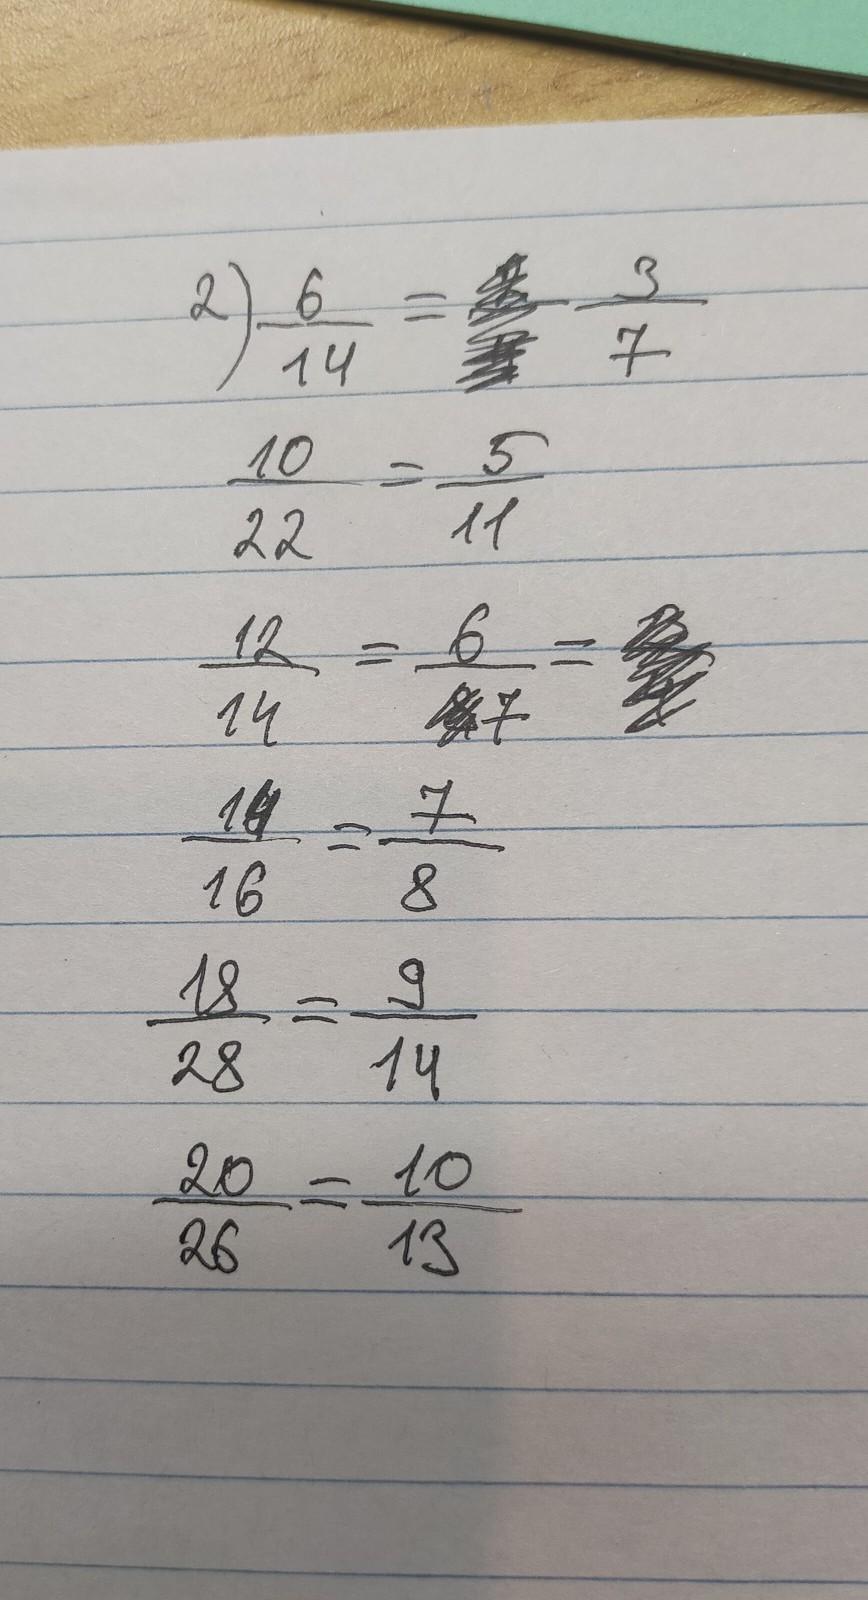 2) 6/14 = 3/7
10/22 = 5/11
12/14 = 6/7 =
14/16 = 7/8
18/28 = 9/14
20/26 = 10/13